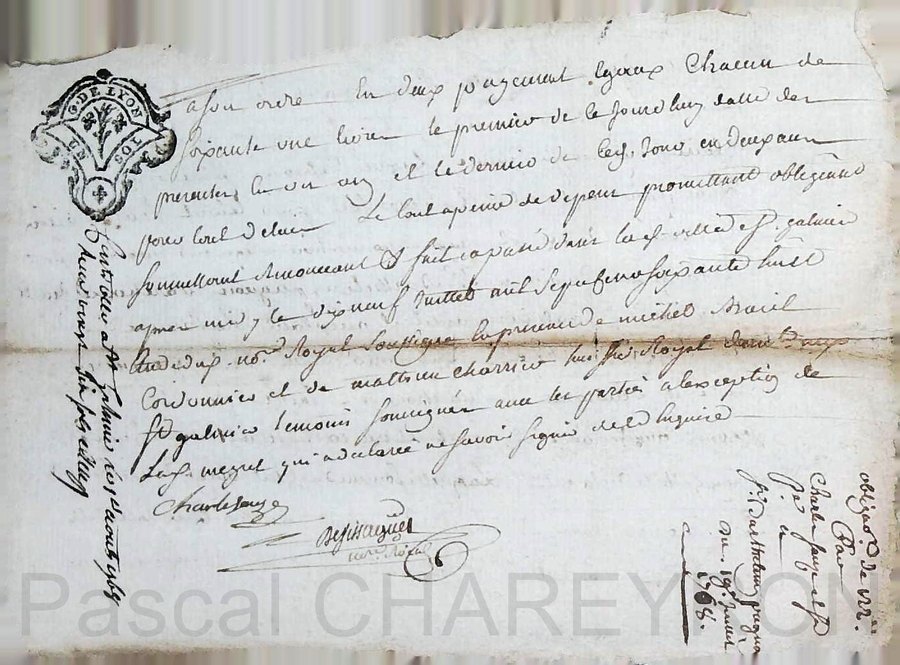 G. DE LYON
UN SOL
a son ordre En deux payement Egaux Chacun de
soixante une livres le premier de ce Jourdhuy datte des
presentes En un an et le dernier de ced. Jour en deux ans
pour tout delais Le tout a peine de depens promettant obligeant
soumettant Renonceant & fait et passé dans lad. ville de St. galmier
apres midy le dixneuf Juillet mil sept cent soixante huit
nore. Royal soussigné En presence de michel
Cordonnier et de mathieu charrier huissier Royal demt. aux
St galmier temoins soussignez avec les parties a lexception de
qui a declaré ne savoir signer de ce Enquise
Charle fauge
nore. Royal
Controllé a St Galmier le 1768
Reçu vingt six sols
obligaon. de 122
Par
Charle fauge
du 19e. Juillet
1768.
Pascal CHAREYRON